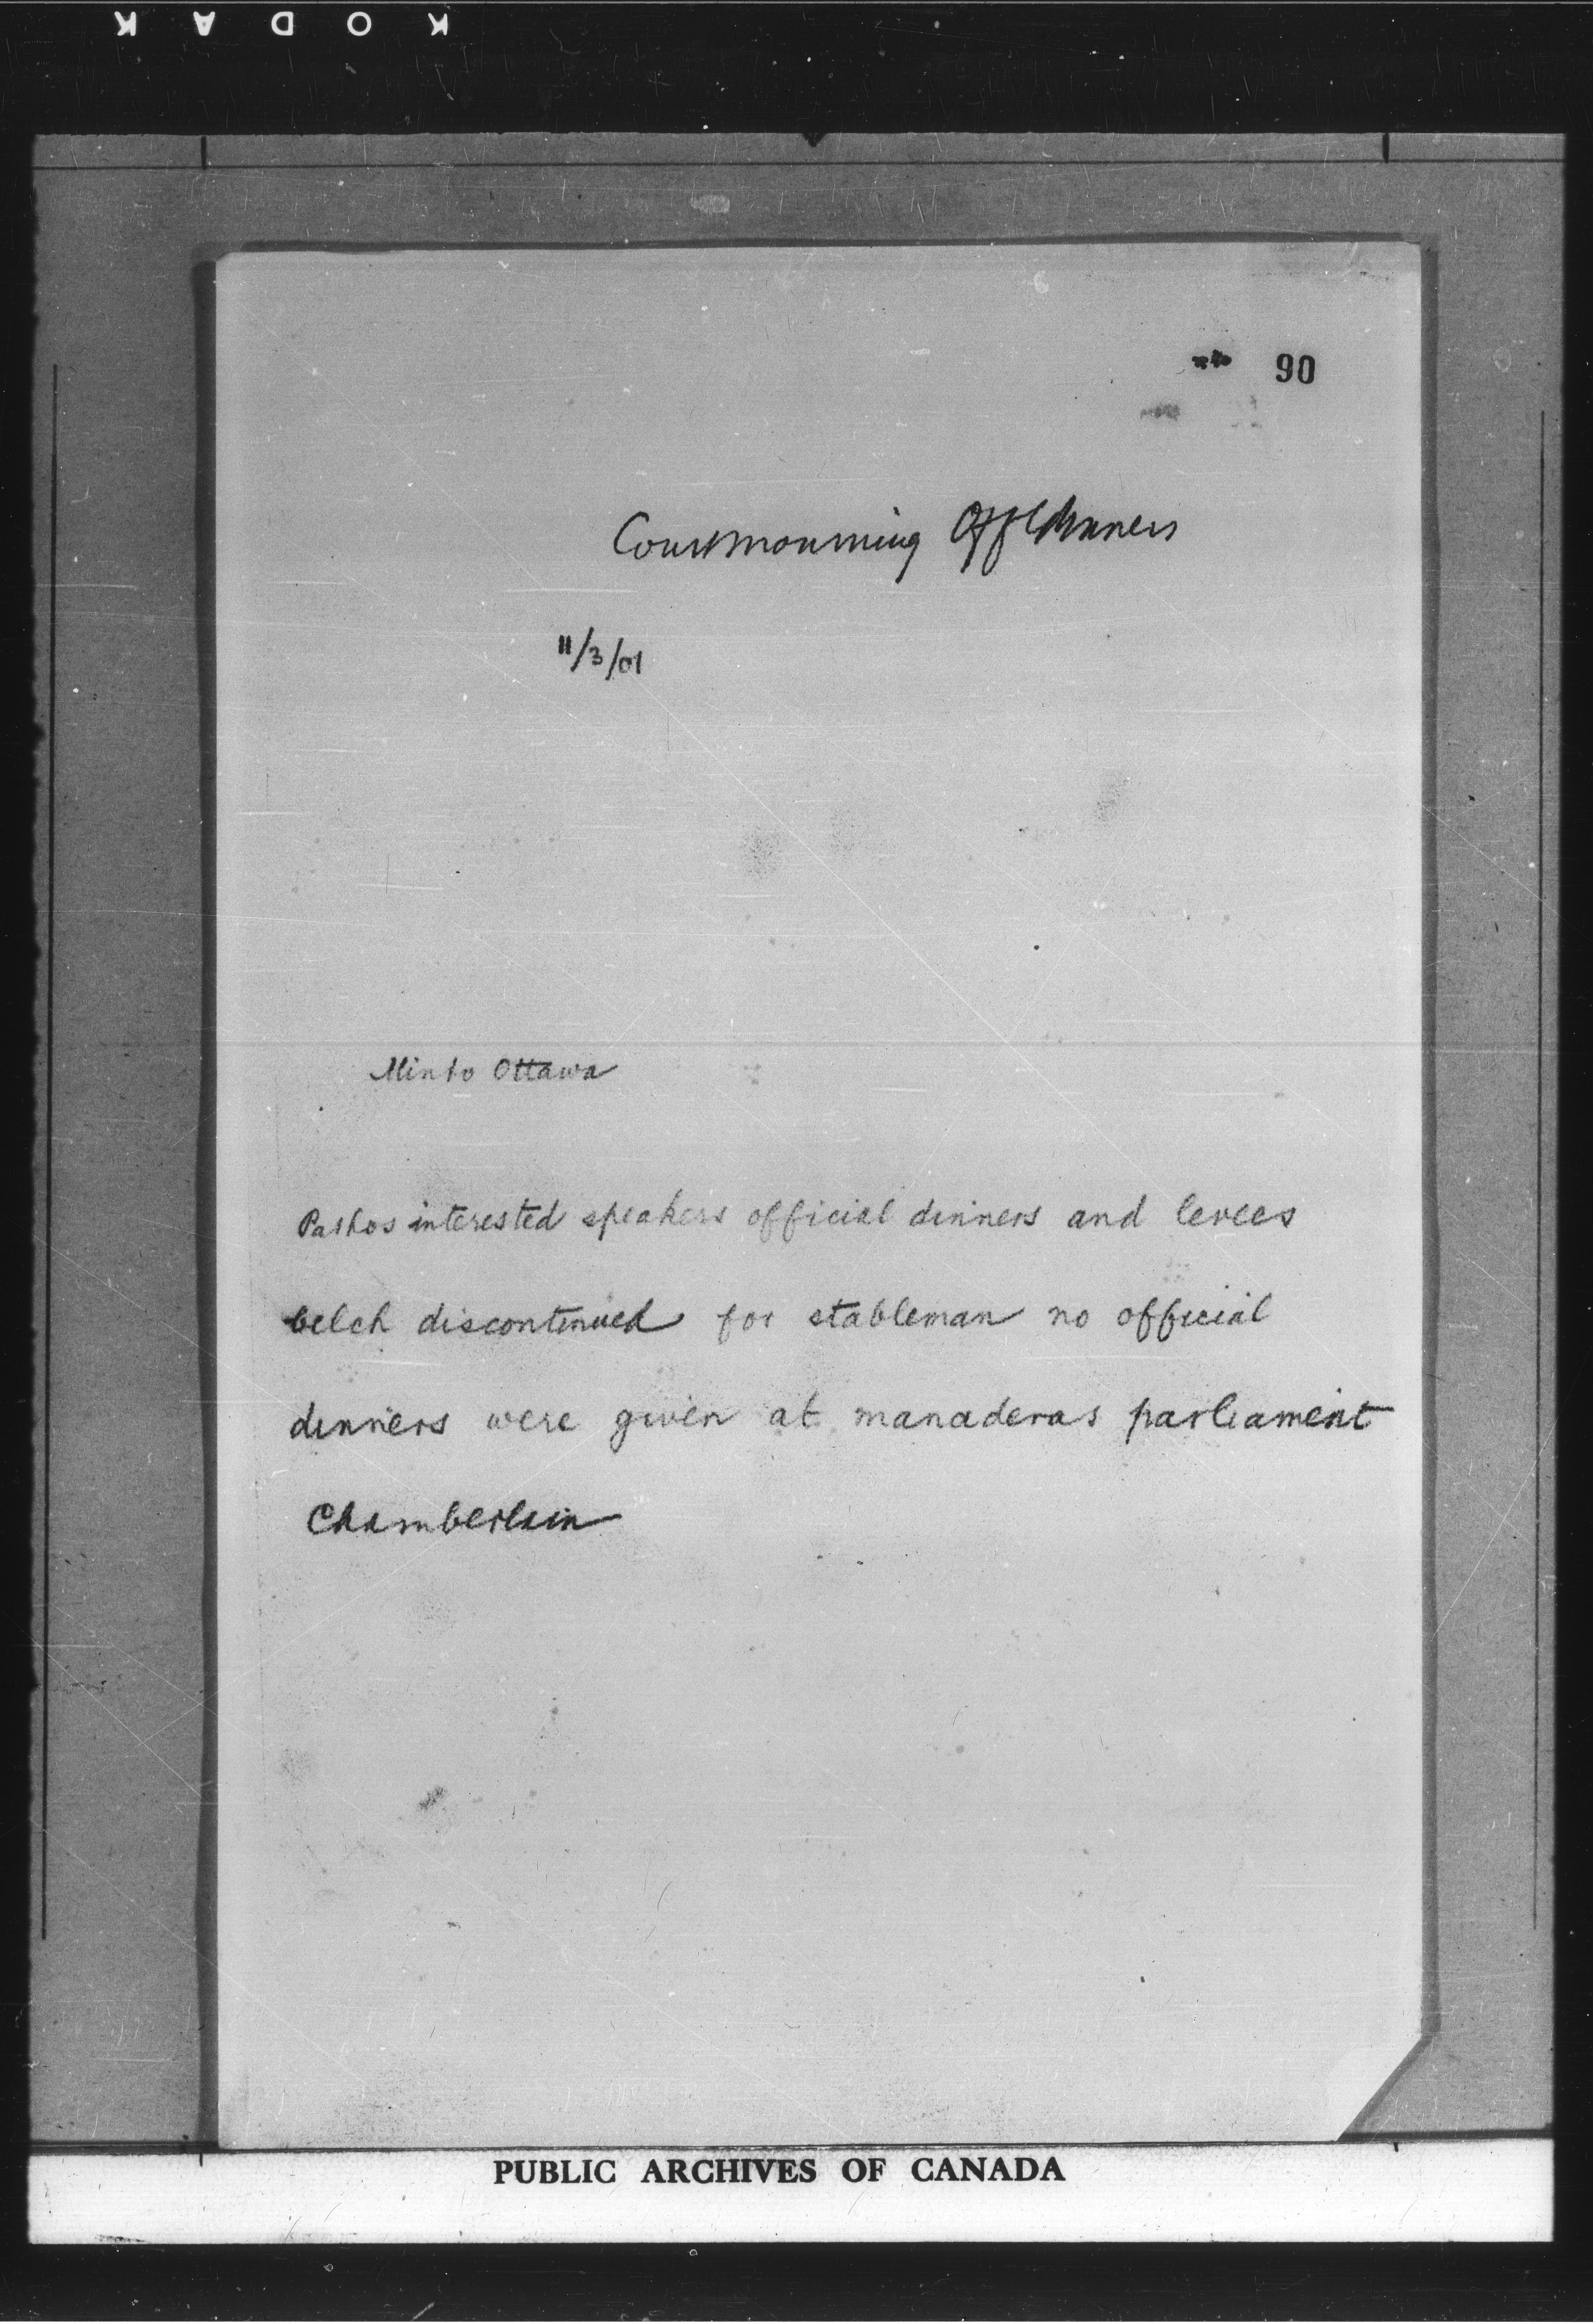 KODAK
90
Court mourning Offl dinners
11/3/01
Minto Ottawa
Pashos interested speakers official dinners and levees
belch discontinued for stableman no official
dinners were given at manaderas parliament
Chamberlain
PUBLIC ARCHIVES OF CANADA